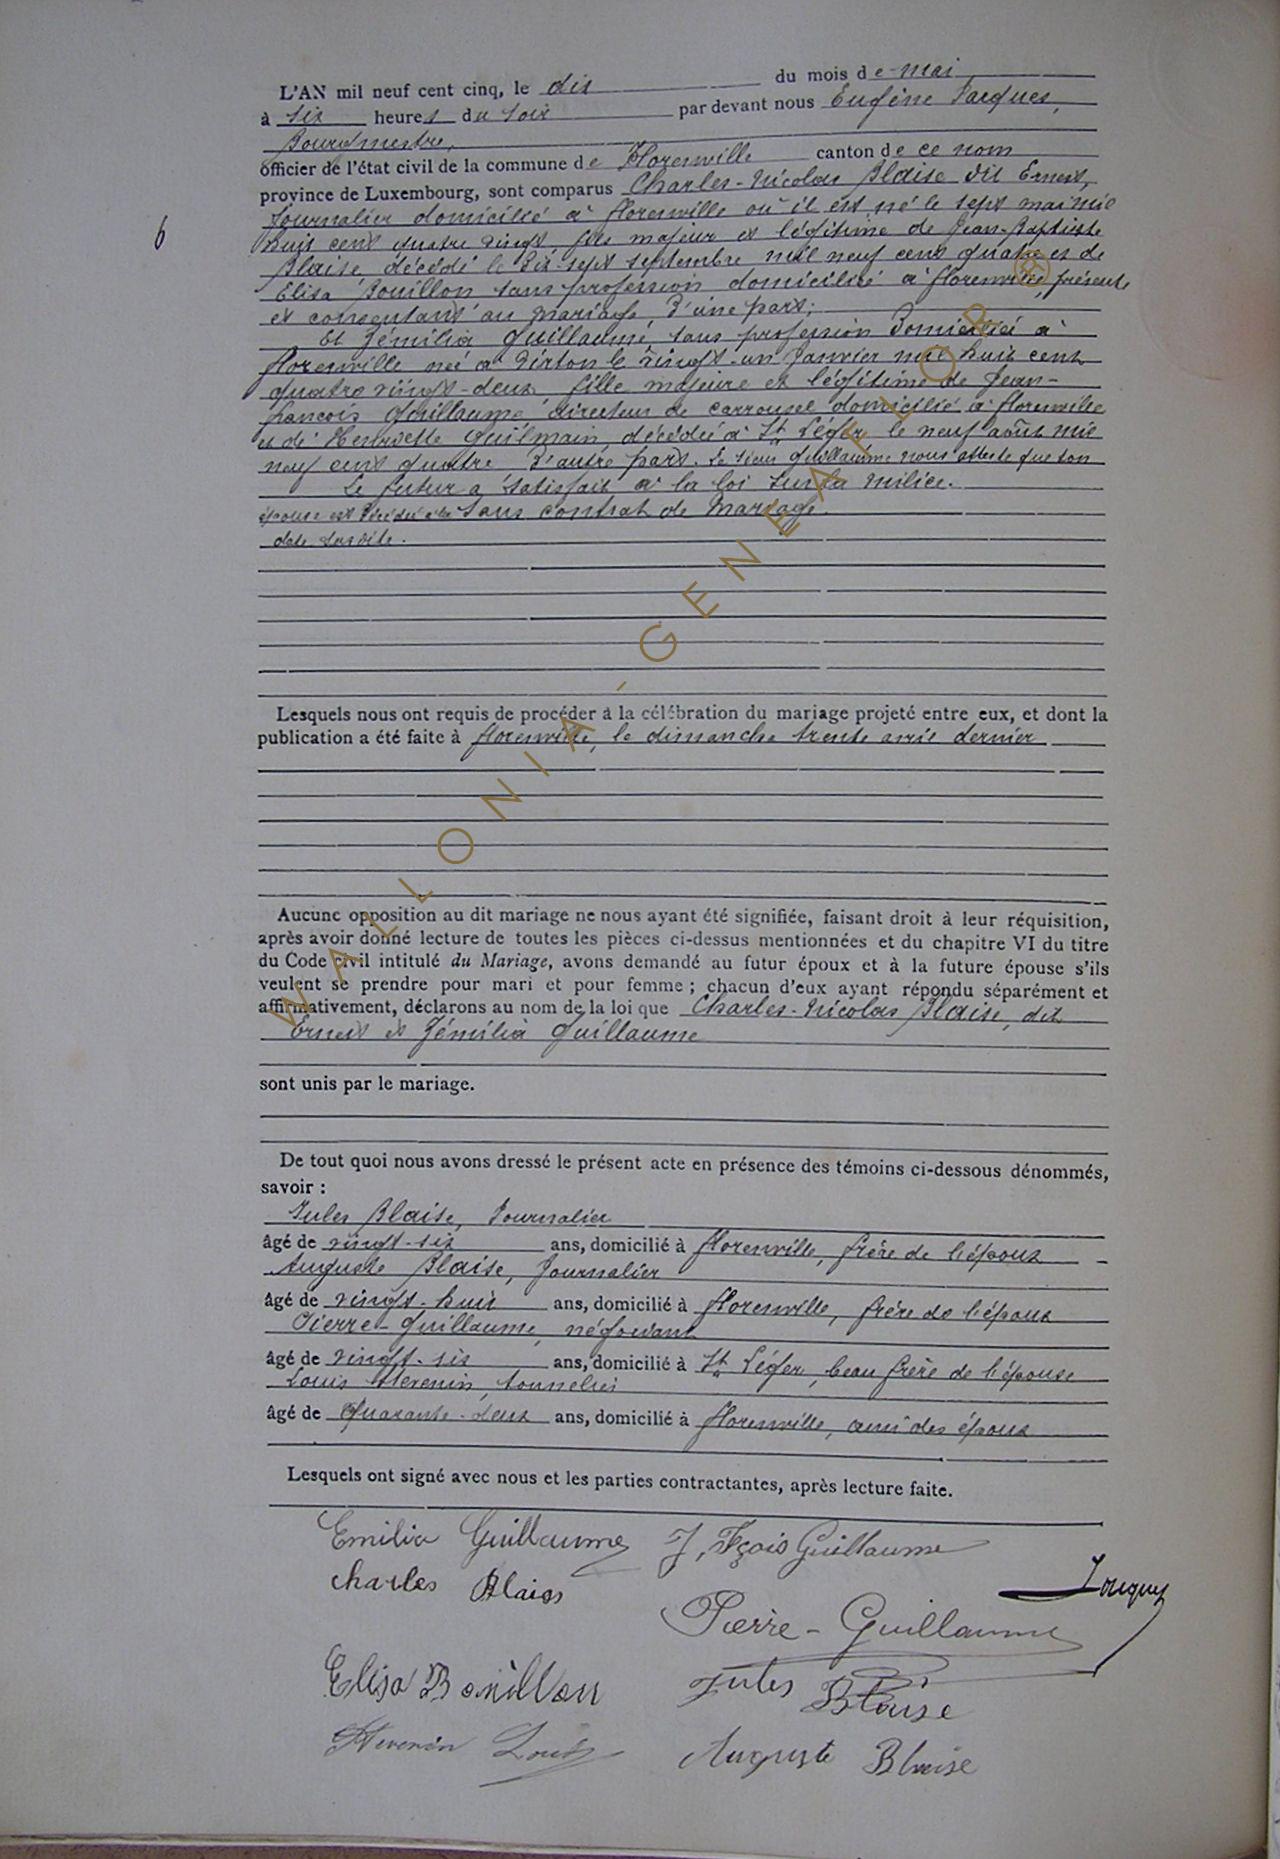 L'AN mil neuf cent cinq, le dix du mois de mai
à six heures du soir par devant nous Eugène Jacques,
Bourgmestre,
officier de l'état civil de la commune de Florenville canton de ce nom
province de Luxembourg, sont comparus Charles-Nicolas Blaise dit Ernest,
6
Journalier domicilié à Florenville où il est né le sept mai mil
huit cent quatre vingt fils majeur et légitime de Jean-Baptiste
Blaise, décédé le dix-sept septembre mil neuf cent quatre et de
Elisa Bouillon sans profession domiciliée à Florenville, présente
et consentant au mariage d'une part;
Et Zémilia Guillaume, sans profession domiciliée à
Florenville née à Virton le vingt-un Janvier mil huit cent
quatre vingt-deux fille majeure et légitime de Jean-
François Guillaume directeur de carrousel domicilié à Florenville
et de Henriette décédée à St Léger le neuf août mil
neuf cent quatre d'autre part. Le sieur Guillaume nous atteste que son
Le futur a satisfait à la loi sur la milice.
épouse est décédée à la sans contrat de mariage.
date susdite.
Lesquels nous ont requis de procéder à la célébration du mariage projeté entre eux, et dont la
publication a été faite à Florenville, le dimanche trente avril dernier
Aucune opposition au dit mariage ne nous ayant été signifiée, faisant droit à leur réquisition,
après avoir donné lecture de toutes les pièces ci-dessus mentionnées et du chapitre VI du titre
du Code civil intitulé du Mariage, avons demandé au futur époux et à la future épouse s'ils
veulent se prendre pour mari et pour femme ; chacun d'eux ayant répondu séparément et
affirmativement, déclarons au nom de la loi que Charles-Nicolas Blaise, dit
Ernest et Zémilia Guillaume
sont unis par le mariage.
De tout quoi nous avons dressé le présent acte en présence des témoins ci-dessous dénommés,
savoir :
Jules Blaise, Journalier
âgé de vingt-six ans, domicilié à Florenville, frère de l'époux
Auguste Blaise, Journalier
âgé de vingt-huit ans, domicilié à Florenville, frère de l'époux
Pierre-Guillaume, négociant
âgé de vingt-six ans, domicilié à St Léger, beau frère de l'épouse
Louis Hevenin, tonnelier
âgé de quarante-deux ans, domicilié à Florenville, ami des époux
Lesquels ont signé avec nous et les parties contractantes, après lecture faite.
Emilia Guillaume J, Fçois Guillaume
Charles Blaios Jacques
Pierre-Guillaume
Elisa Bouillon Jules Blaise
Hevenin Louis Auguste Blaise
WALLONIA-GENEAFLOR